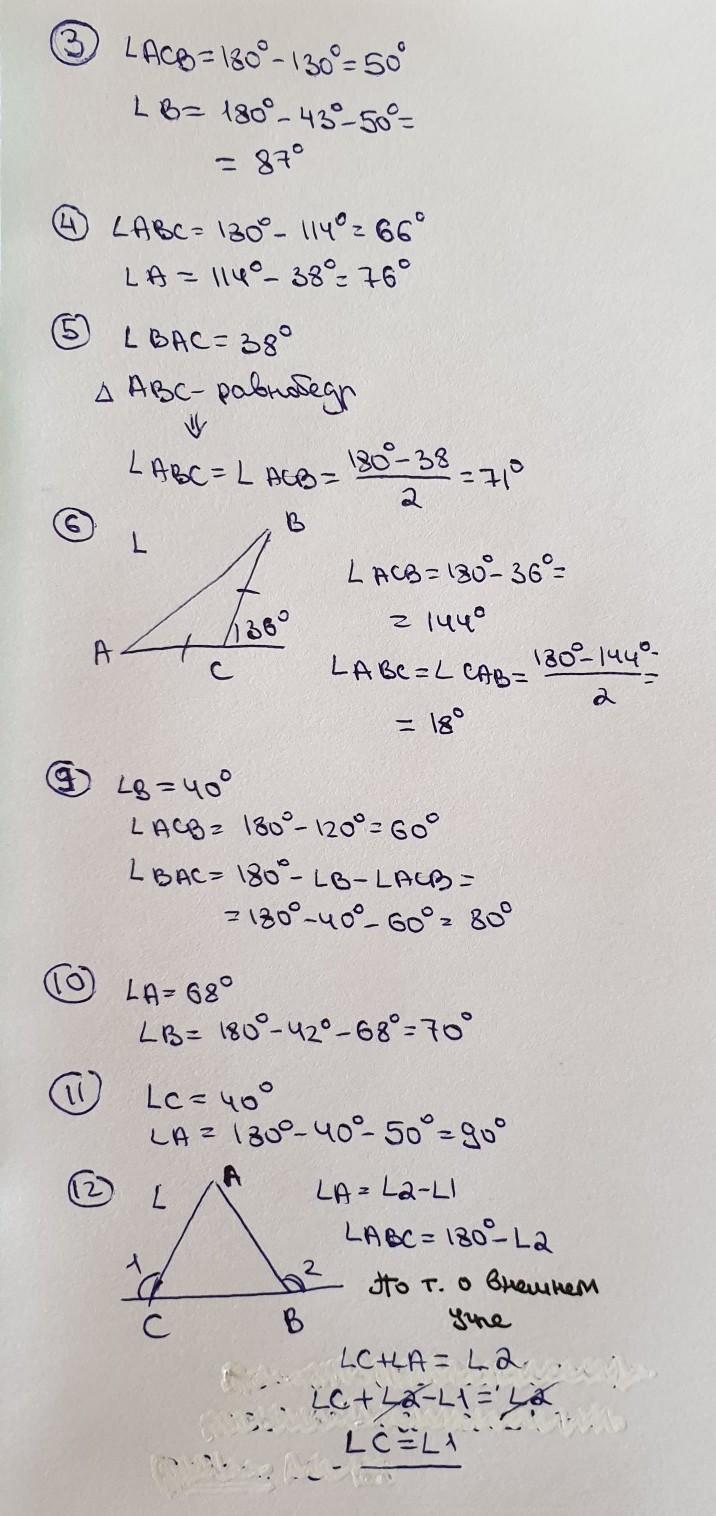 3 ∠ACB = 180° - 130° = 50°
∠B = 180° - 43° - 50° =
= 87°
4 ∠ABC = 180° - 114° = 66°
∠A = 114° - 38° = 76°
5 ∠BAC = 38°
△ ABC - равнобедр
⇓
∠ABC = ∠ACB = (180° - 38)/2 = 71°
6 ∠
B
∠ACB = 180° - 36° =
= 144°
136°
A
C
∠ABC = ∠CAB = (180° - 144°)/2 =
= 18°
9 ∠B = 40°
∠ACB = 180° - 120° = 60°
∠BAC = 180° - ∠B - ∠ACB =
= 180° - 40° - 60° = 80°
10 ∠A = 68°
∠B = 180° - 42° - 68° = 70°
11 ∠C = 40°
∠A = 180° - 40° - 50° = 90°
12 ∠
A
∠A = ∠2 - ∠1
∠ABC = 180° - ∠2
1
2
C
B
По т. о внешнем
угле
∠C + ∠A = ∠2
∠C + ∠2 - ∠1 = ∠2
∠C = ∠1